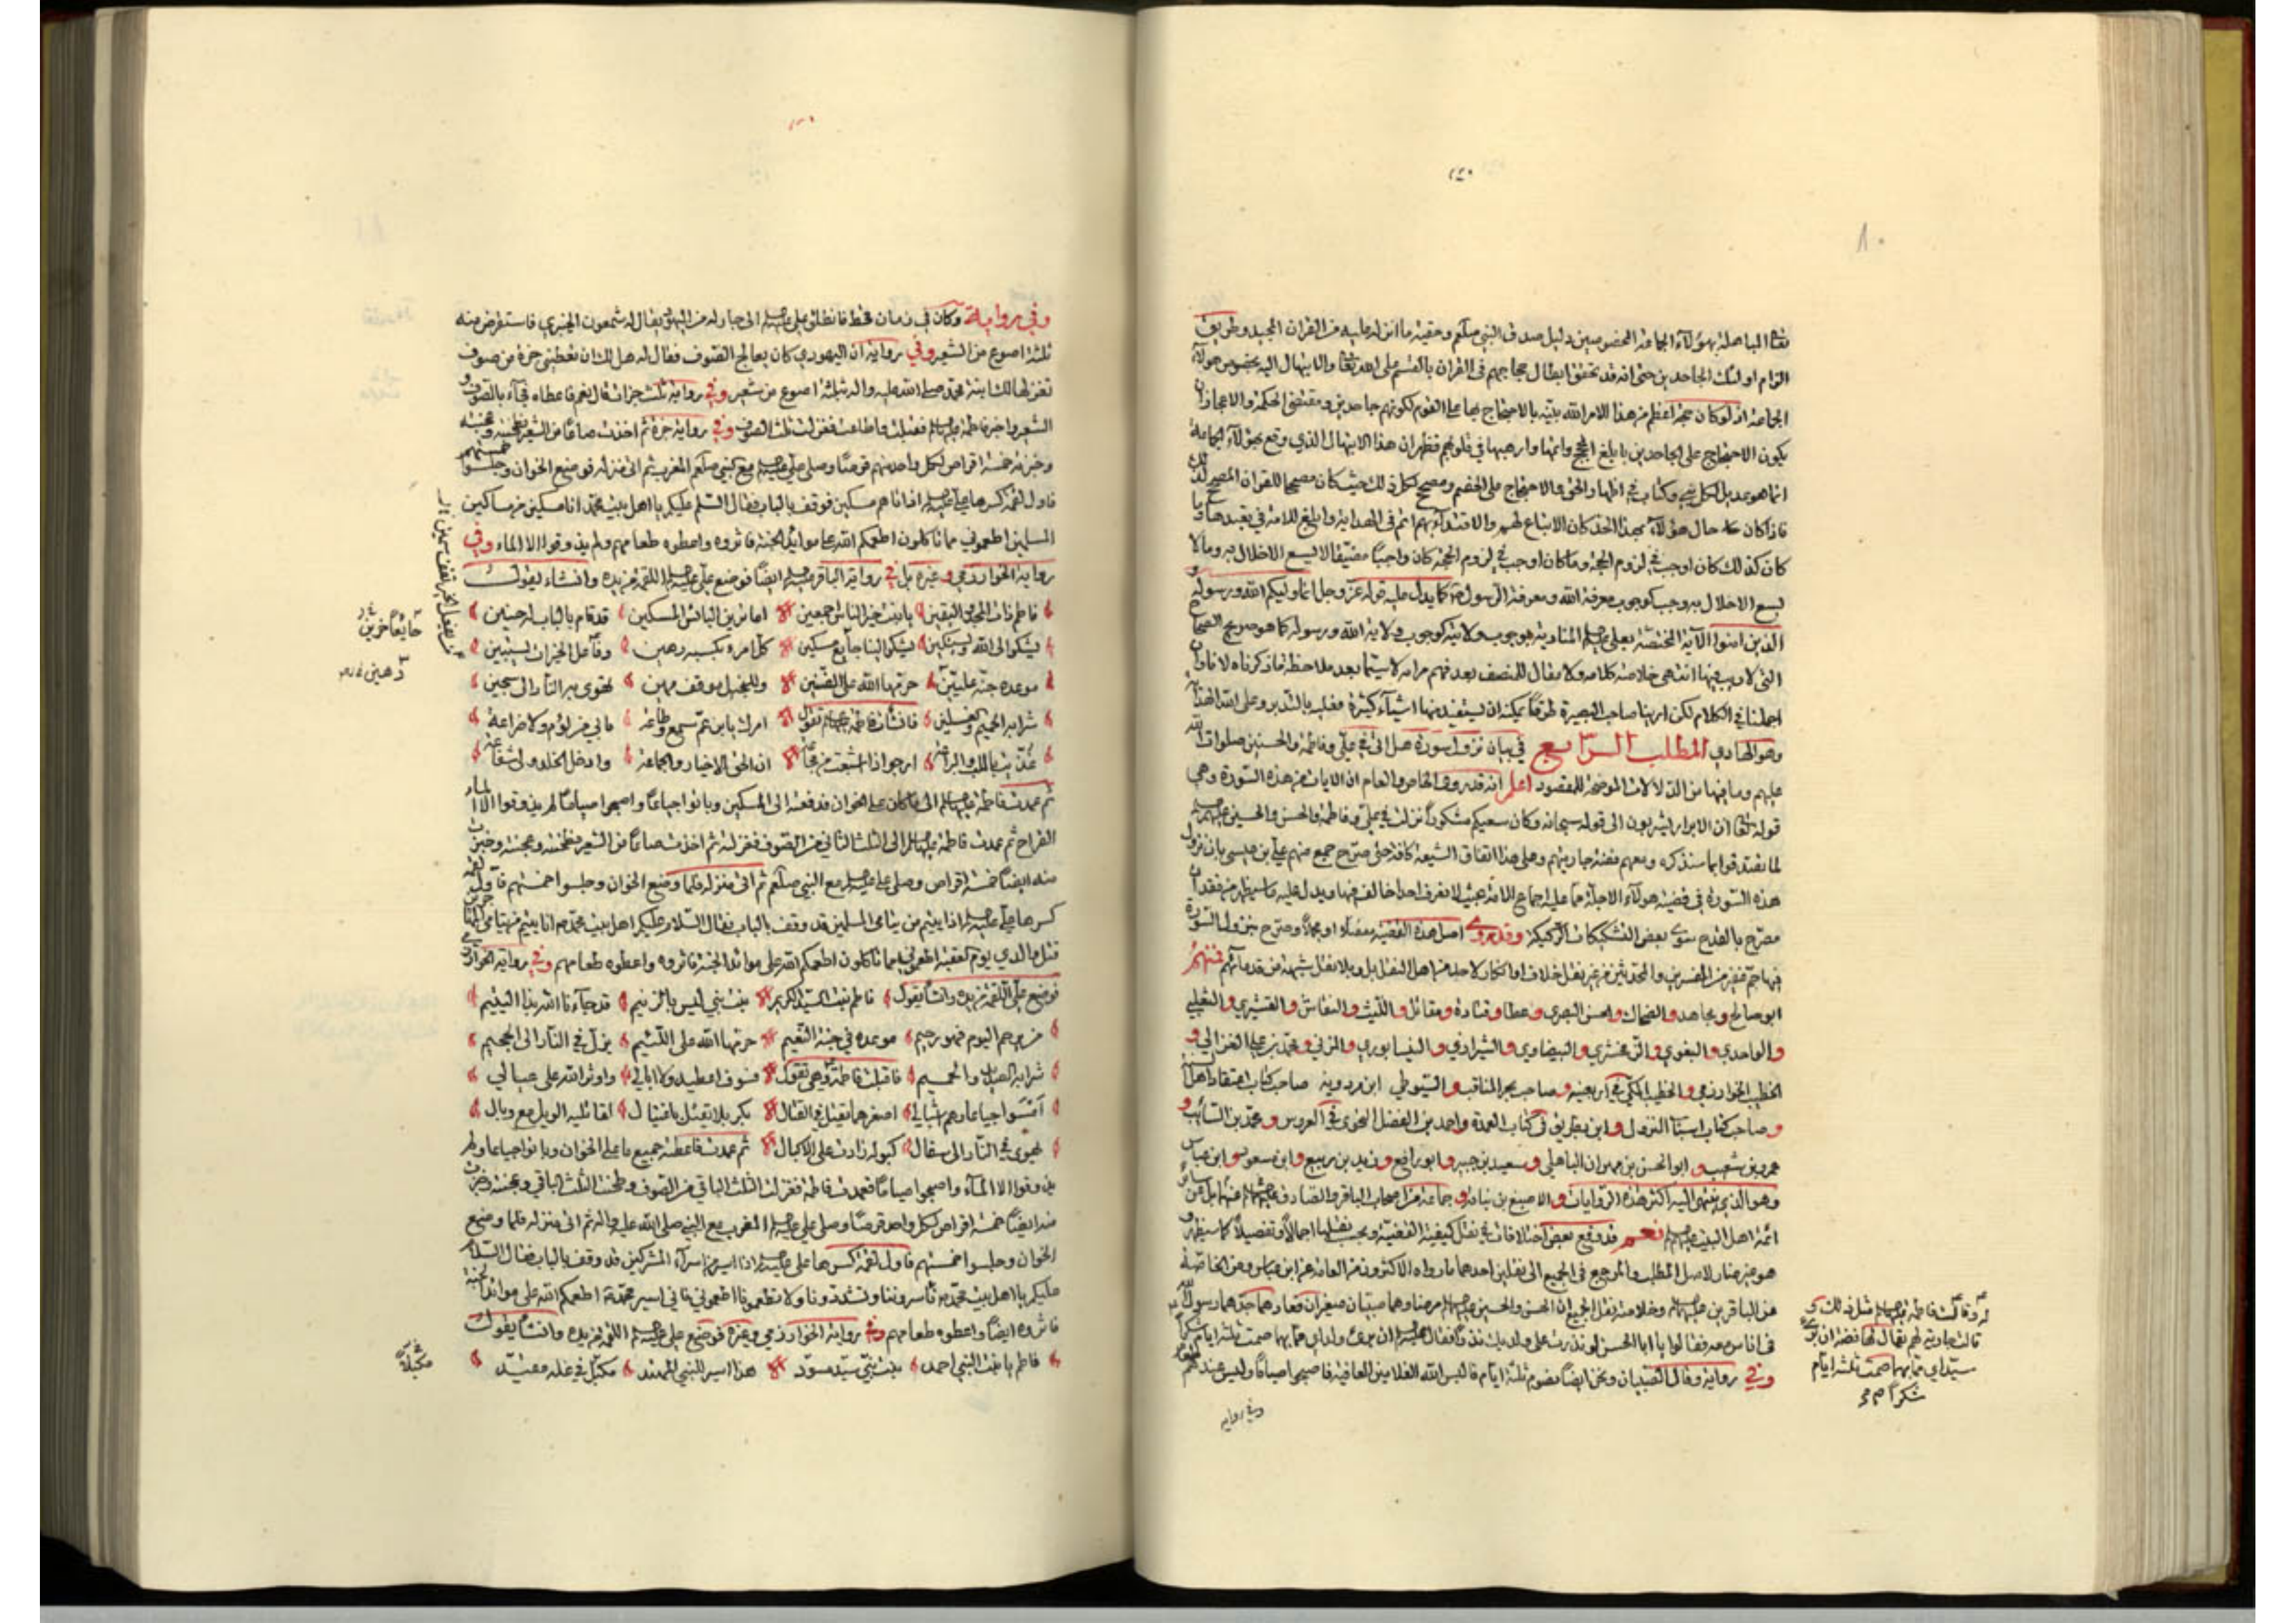 تعالى المباهلة بهؤلاء الجماعة المخصوصين دليل صدق النبي صلعم وحقية ما انزل عليه من القران المجيد وطريق
الزام اولئك الجاحدين حتى انه قد تحقق ابطال حجاجهم في القران بالقسم على الله تعالى والابتهال اليه بخصوص هؤلاء
الجماعة اذ لو كان حجة اعظم من هذا الامر الله نبيه بالاحتجاج بها على القوم لكونهم جاحدين ومقتضى الحكمة والاعجاز ان
يكون الاحتجاج على الجاحدين بابلغ الحجج واتمها وارهبها في قلوبهم فظهر ان هذا الابتهال الذي وقع بهؤلاء الجماعة
انما هو عديل لكل نبي وكتاب في اظهار الحق والاحتجاج على الخصم ومصحح لكل ذلك حيث كان مصححا للقران المصحح لذلك
فاذا كان حال هؤلاء بهذا الحد كان الاتباع لهم والاقتداء بهم اتم في الهداية وابلغ للامة في تعبدها وما
كان كذلك كان اوجب في لزوم الحجة وما كان اوجب في لزوم الحجة كان واجبا مضيقا لا يسع الاخلال به وما لا
يسع الاخلال به وجب كوجوب معرفة الله ومعرفة الرسول كما يدل عليه قوله عز وجل انما وليكم الله ورسوله و
الذين امنوا الآية المختصة بعلي المنادية بوجوب ولايته كوجوب ولاية الله ورسوله كما هو صريح
التي لا ريب فيها انتهى خلاصة كلامه ولا مقال للمنصف بعد فهم مرامه لا سيما بعد ملاحظة ما ذكرناه لا نا وان
اجملنا في الكلام لكن ارينا صاحب البصيرة طرقا يمكنه ان يستفيد منها اشياء كثيرة فعليه بالتدبر وعلى الله
وهو الهادي المطلب الرابع في بيان نزول سورة هل اتى في علي وفاطمة والحسنين صلوات الله
عليهم وما فيها من الدلالات الموضحة للمقصود اعلم انه قد روى الخاص والعام ان الايات من هذه السورة وهي
قوله تعالى ان الابرار يشربون الى قوله سبحانه وكان سعيكم مشكورا نزلت في علي وفاطمة والحسن والحسين
لما تصدقوا بما سنذكره ومعهم فضة جاريتهم وعلى هذا اتفاق الشيعة كافة حتى صرح جمع منهم علي بن عيسى بان نزول
هذه السورة في قضية هؤلاء الاجلة مما عليه اجماع الامة بحيث لا نعرف احدا خالف فيها ويدل عليه ما سيظهر من فقدان
مصرح بالقدح سوى بعض التشكيكات الركيكة وقد روى اصل هذه القضية مفصلا او مجملا وصرح بنزول السورة
فيها جم غفير من المفسرين والمحدثين من غير نقل خلاف او انكار لاحد من اهل النقل بل وبلا نقل شبهة من قدمائهم فمنهم
ابو صالح ومجاهد والضحاك والحسن البصري وعطا وقتادة ومقاتل والليث والنقاش والقشيري والثعلبي
والواحدي والبغوي والزمخشري والبيضاوي والشيرازي والنيسابوري والمزني ومحمد بن علي الغزالي و
الخطيب الخوارزمي والخطيب المكي في اربعينه وصاحب بحر المناقب والسيوطي ابن مردويه صاحب كتاب اعتقاد اهل السنة
وصاحب كتاب اسباب النزول وابن بطريق في كتاب العمدة واحمد بن الفضل النحوي في العروس ومحمد بن السائب و
عمرو بن شعيب وابو الحسن بن مهران الباهلي وسعيد بن جبير وابو رافع وزيد بن ربيع وابن مسعود وابن عباس
وهو الذي ينتهي اليه اكثر هذه الروايات والاصبغ بن نباتة وجماعة من اصحاب الباقر والصادق عنهما بل عن
ائمة اهل البيت نعم قد وقع بعض اختلافات في نقل كيفية القضية وبحسب نقلها اجمالا وتفصيلا كما سيظهر و
هو غير ضار لاصل المطلب والمرجع في الجميع الى نقلين احدهما ما رواه الاكثرون من العامة عن ابن عباس ومن الخاصة
عن الباقر بن وخلاصة نقل الجميع ان الحسن والحسين مرضا وهما صبيان صغيران فعادهما جدهما رسول الله
في اناس معه فقالوا يا ابا الحسن لو نذرت على ولديك نذرا فقال ان برئ ولداي مما بهما صمت ثلثة ايام شكرا
وفي رواية وقال الصبيان ونحن ايضا نصوم ثلثة ايام فالبس الله الغلامين العافية فاصبحوا صياما وليس عندهم
وقالت فاطمة مثل ذلك و
قالت جارية لهم يقال لها فضة ان برئ
سيداي مما بهما صمت ثلثة ايام
شكرا
وفي رواية
وفي رواية وكان في زمان قحط فانطلق علي الى جار له من اليهود يقال له شمعون الخيبري فاستقرض منه
ثلثة اصوع من الشعير وفي رواية ان اليهودي كان يعالج الصوف فقال له هل لك ان تعطيني جزة من صوف
تغزلها لك ابنة محمد صلى الله عليه واله بثلثة اصوع من شعير وفي رواية ثلث جزات قال نعم فاعطاه فجاء بالصوف و
الشعير واخبر فاطمة فقبلت واطاعت فغزلت ثلث الصوف وفي رواية جزة ثم اخذت صاعا من الشعير فطحنته وعجنته
وخبزت خمسة اقراص لكل واحد منهم قرصا وصلى علي مع النبي صلعم المغرب ثم اتى منزله فوضع الخوان وجلسوا خمستهم
فاول لقمة كسرها علي اذا اتاهم مسكين فوقف بالباب فقال السلم عليكم يا اهل بيت محمد انا مسكين من مساكين
المسلمين اطعموني مما تاكلون اطعمكم الله على موائد الجنة فاثروه واعطوه طعامهم ولم يذوقوا الا الماء وفي
رواية الخوارزمي وغيره بل في رواية الباقر ايضا فوضع علي اللقمة من يده وانشاء يقول
فاطم ذات المجد واليقين يا بنت خير الناس اجمعين اما ترين البائس المسكين قد قام بالباب له حنين
يشكو الى الله ويستكين يشكو الينا جائع مسكين كل امرء بكسبه رهين وفاعل الخيرات يستبين
موعده جنة عليين حرمها الله على الضنين وللبخيل موقف مهين تهوى به النار الى سجين
شرابه الحميم والغسلين فانشأت فاطمة تقول امرك يا بن عم سمع وطاعة ما بي من لؤم ولا ضراعة
ارجو اذا اشبعت من مجاعة ان الحق الاخيار والجماعة وادخل الخلد ولي شفاعة
ثم عمدت فاطمة الى ما كان على الخوان فدفعته الى المسكين وباتوا جياعا واصبحوا صياما لم يذوقوا الا الماء
القراح ثم عمدت فاطمة الى الثلث الثاني من الصوف فغزلته ثم اخذت صاعا من الشعير فطحنته وعجنته وخبزت
منه ايضا خمسة اقراص وصلى علي مع النبي صلعم ثم اتى منزله فلما وضع الخوان وجلسوا خمستهم فاول لقمة
كسرها علي اذا يتيم من يتامى المسلمين قد وقف بالباب فقال السلام عليكم اهل بيت محمد انا يتيم من يتامى
قتل والدي يوم العقبة اطعموني مما تاكلون اطعمكم الله على موائد الجنة فاثروه واعطوه طعامهم وفي رواية الخوارزمي
فوضع علي اللقمة من يده وانشأ يقول فاطم بنت السيد الكريم بنت نبي ليس بالزنيم قد جاءنا الله بذا اليتيم
من يرحم اليوم فهو رحيم موعده في جنة النعيم حرمها الله على اللئيم يزل في النار الى الجحيم
شرابه الصديد والحميم فاقبلت فاطمة وهي تقول فسوف اعطيه ولا ابالي واوثر الله على عيالي
امسوا جياعا وهم اشبالي اصغرهما يقتل في القتال بكربلا يقتل باغتيال لقاتليه الويل مع وبال
يهوى في النار الى سفال كبوله زادت على الاكبال ثم عمدت فاعطته جميع ما على الخوان وباتوا جياعا ولم
يذوقوا الا الماء واصبحوا صياما فعمدت فاطمة فغزلت الثلث الباقي من الصوف وطحنت الثلث الباقي وعجنته وخبزت
منه ايضا خمسة اقراص لكل واحد قرصا وصلى علي المغرب مع النبي صلى الله عليه واله ثم اتى منزله فلما وضع
الخوان وجلسوا خمستهم فاول لقمة كسرها علي اذا اسير من اسراء المشركين قد وقف بالباب فقال السلام
عليكم يا اهل بيت محمد تاسروننا وتشدوننا ولا تطعمونا اطعموني فاني اسير محمد اطعمكم الله على موائد الجنة
فاثروه ايضا واعطوه طعامهم وفي رواية الخوارزمي وغيره فوضع علي اللقمة من يده وانشأ يقول
فاطم يا بنت النبي احمد بنت نبي سيد مسود هذا اسير للنبي المهتد مكبل في غله مقيد